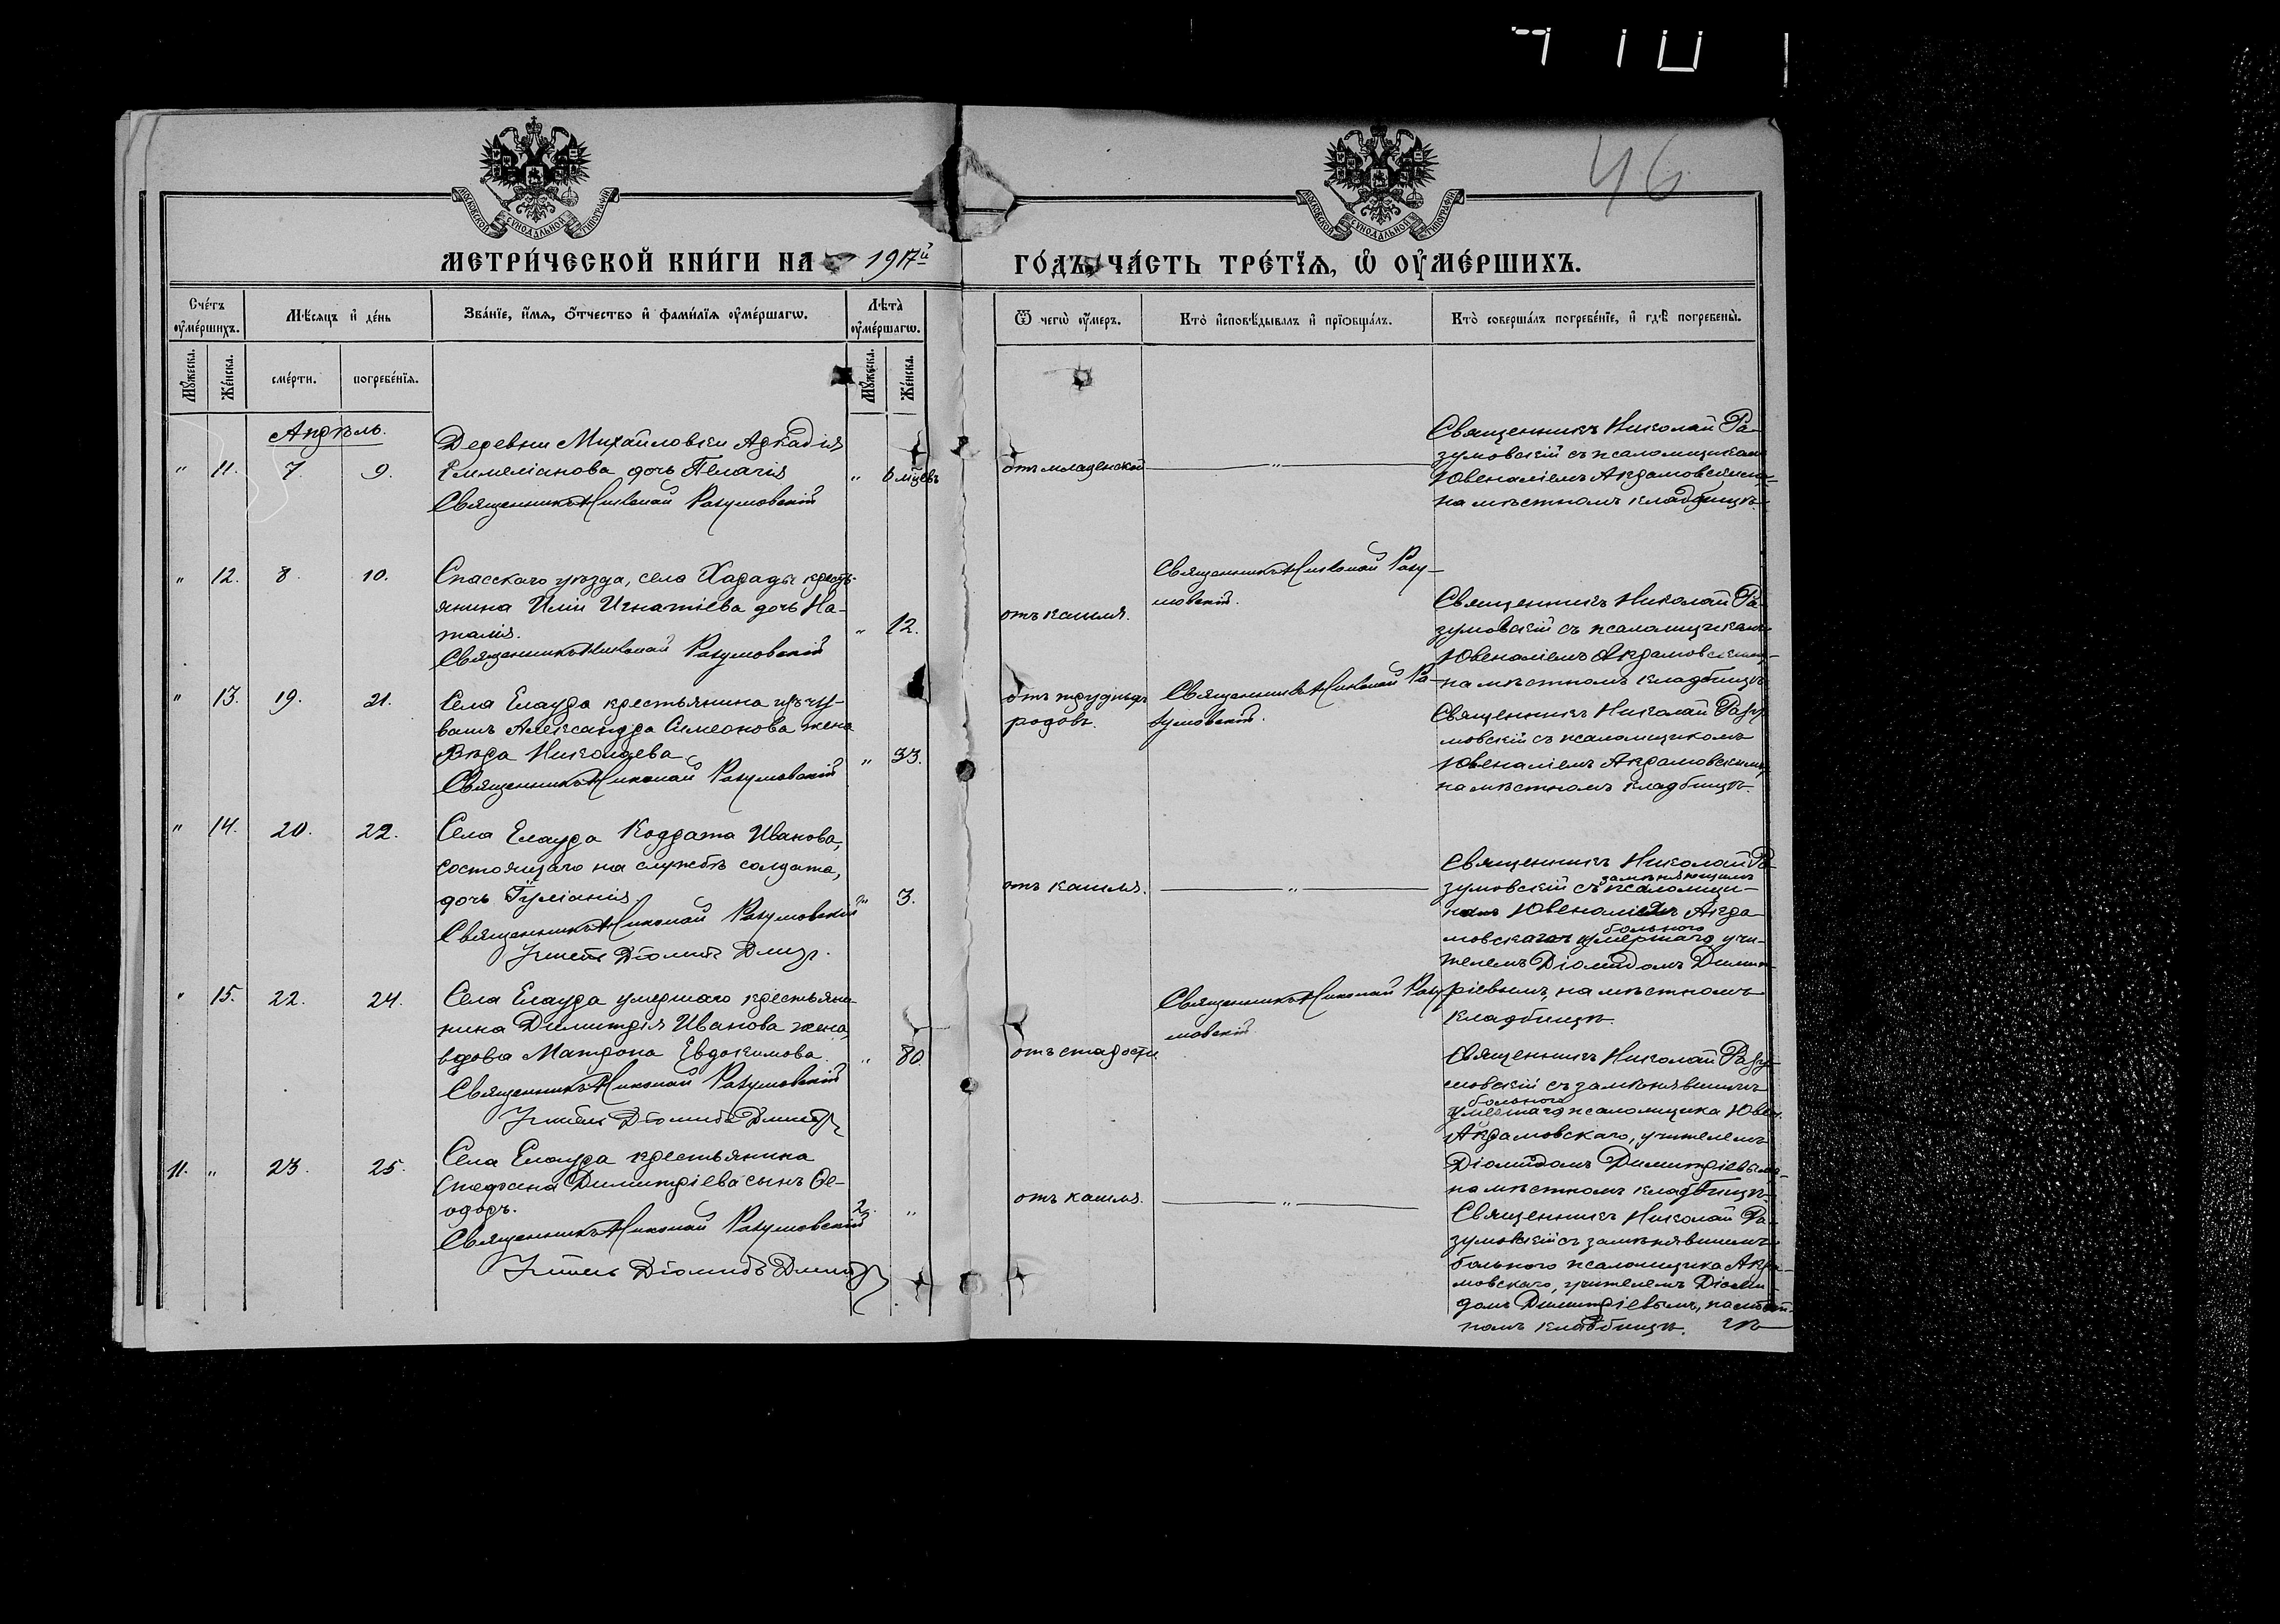 46
МОСКОВСКОЙ СУНОДАЛЬНОЙ ТИПОГРАФІИ
МОСКОВСКОЙ СУНОДАЛЬНОЙ ТИПОГРАФІИ
МЕТРИ́ЧЕСКОЙ КНИ́ГИ НА 1917й ГО́ДЪ, ЧА́СТЬ ТРЕ́ТЇѦ, Ѡ҆ ОУ҆МЕ́РШИХЪ.
Сче́тъ оу҆ме́ршихъ.
Мѣ́сяцъ и҆ де́нь
Зва́нїе, и҆́мѧ, ѻ҆́тчество и҆ фами́лїѧ оу҆ме́ршагѡ.
Лѣ̀та оу҆ме́ршагѡ.
Ѿ чегѡ̀ оу҆́меръ.
Кто̀ и҆сповѣ́дывалъ и҆ прїѻбща́лъ.
Кто̀ соверша́лъ погребе́нїе, и҆ гдѣ̀ погребены̀.
Мꙋ́жеска. Же́нска. сме́рти. погребе́нїѧ. Мꙋ́жеска. Же́нска.
Апрѣль.
" 11. 7. 9.
Деревни Михайловки Аркадія
Емиліанова дочь Пелагія
Священникъ Николай Разумовскій
" 6 мцевъ
отъ младенской
"
Священникъ Николай Ра-
зумовскій съ псаломщикомъ
Ювеналіемъ Акрамовскимъ
на мѣстномъ кладбищѣ.
" 12. 8. 10.
Спасскаго уѣзда, села кресть-
янина Иліи Игнатіева дочь На-
талія.
Священникъ Николай Разумовскій
" 12.
отъ кашля.
Священникъ Николай Разу-
мовскій.
Священникъ Николай Ра-
зумовскій съ псаломщикомъ
Ювеналіемъ Акрамовскимъ
на мѣстномъ кладбищѣ
" 13. 19. 21.
Села Елаура крестьянина изъ чу-
вашъ Александра Симеонова жена
Вѣра Николаева
Священникъ Николай Разумовскій
" 33.
отъ трудныхъ
родовъ.
Священникъ Николай Ра-
зумовскій.
Священникъ Николай Разу-
мовскій съ псаломщикомъ
Ювеналіемъ Акрамовскимъ
на мѣстномъ кладбищѣ.
" 14. 20. 22.
Села Елаура Кодрата Иванова,
состоящаго на службѣ солдата,
дочь Іуліанія.
Священникъ Николай Разумовскій
Учитель Діомидъ
" 3.
отъ кашля.
"
Священникъ Николай Ра-
замѣняющимъ
зумовскій съ псаломщи-
Ювеналія Акра-
больного
мовскаго умершаго учи-
телемъ Діомидомъ Димит-
ріевымъ, на мѣстномъ
кладбищѣ.
" 15. 22. 24.
Села Елаура умершаго крестья-
нина Димитрія Иванова жена,
вдова Матрона Евдокимова.
Священникъ Николай Разумовскій
Учитель Діомидъ
" 80.
отъ старости
Священникъ Николай Разу-
мовскій.
Священникъ Николай Разу-
мовскій съ замѣнявшимъ
больного
умершаго псаломщика Ювен.
Акрамовскаго, учителемъ
Діомидомъ Димитріевымъ
на мѣстномъ кладбищѣ.
11. " 23. 25.
Села Елаура крестьянина
Стефана Димитріева сынъ Ѳе-
одоръ.
Священникъ Николай Разумовскій
Учитель Діомидъ
2. "
отъ кашля.
"
Священникъ Николай Ра-
зумовскій съ замѣнявшимъ
больного псаломщика Акра-
мовскаго, учителемъ Діоми-
домъ Димитріевымъ, на мѣст-
номъ кладбищѣ.